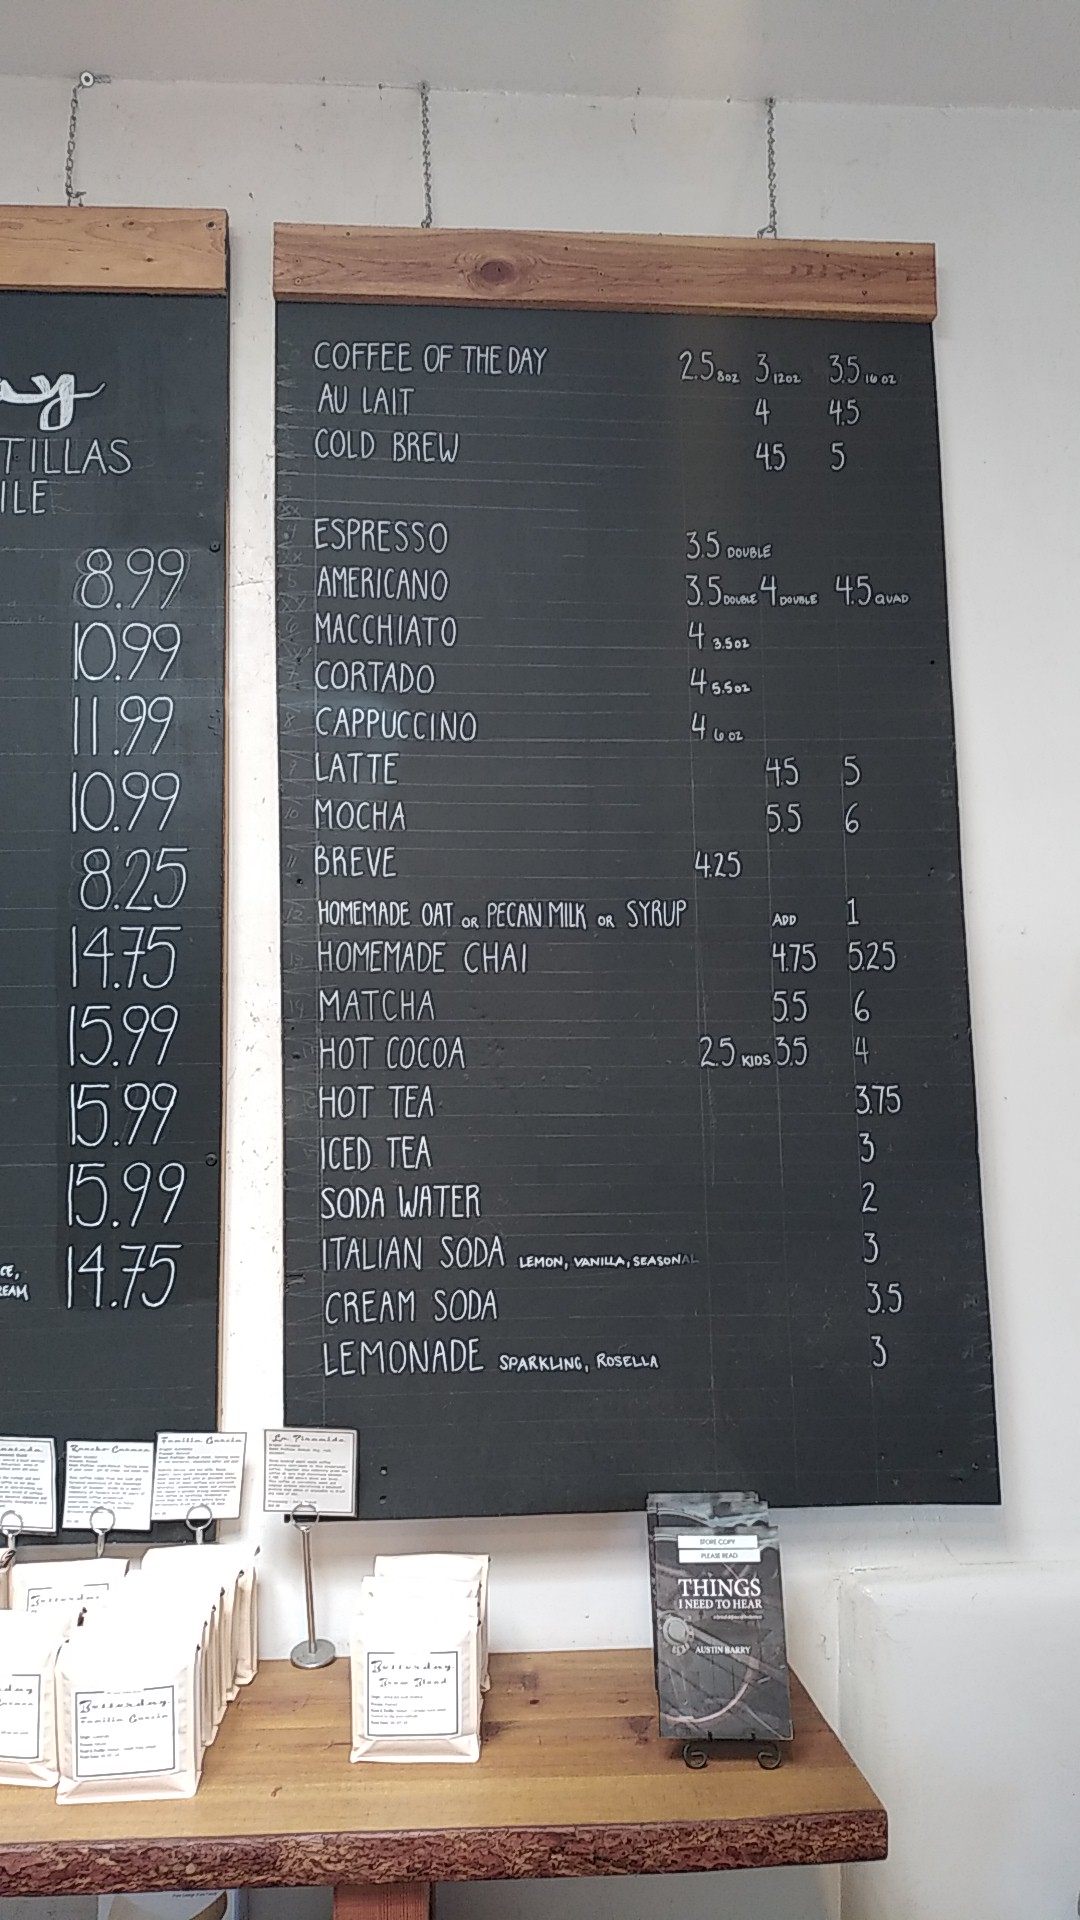 ay
TILLAS
ILE
8.99
10.99
11.99
10.99
8.25
14.75
15.99
15.99
15.99
CE,
EAM
14.75
COFFEE OF THE DAY 2.5 8oz 3 12oz 3.5 16oz
AU LAIT 4 4.5
COLD BREW 4.5 5
ESPRESSO 3.5 DOUBLE
AMERICANO 3.5 DOUBLE 4 DOUBLE 4.5 QUAD
MACCHIATO 4 3.5oz
CORTADO 4 5.5oz
CAPPUCCINO 4 6oz
LATTE 4.5 5
MOCHA 5.5 6
BREVE 4.25
HOMEMADE OAT OR PECAN MILK OR SYRUP ADD 1
HOMEMADE CHAI 4.75 5.25
MATCHA 5.5 6
HOT COCOA 2.5 KIDS 3.5 4
HOT TEA 3.75
ICED TEA 3
SODA WATER 2
ITALIAN SODA LEMON, VANILLA, SEASONAL 3
CREAM SODA 3.5
LEMONADE SPARKLING, ROSELLA 3
Familia Garcia
Betterday
Familia Garcia
Betterday
Brew Blend
STORE COPY
PLEASE READ
THINGS
I NEED TO HEAR
AUSTIN BARRY